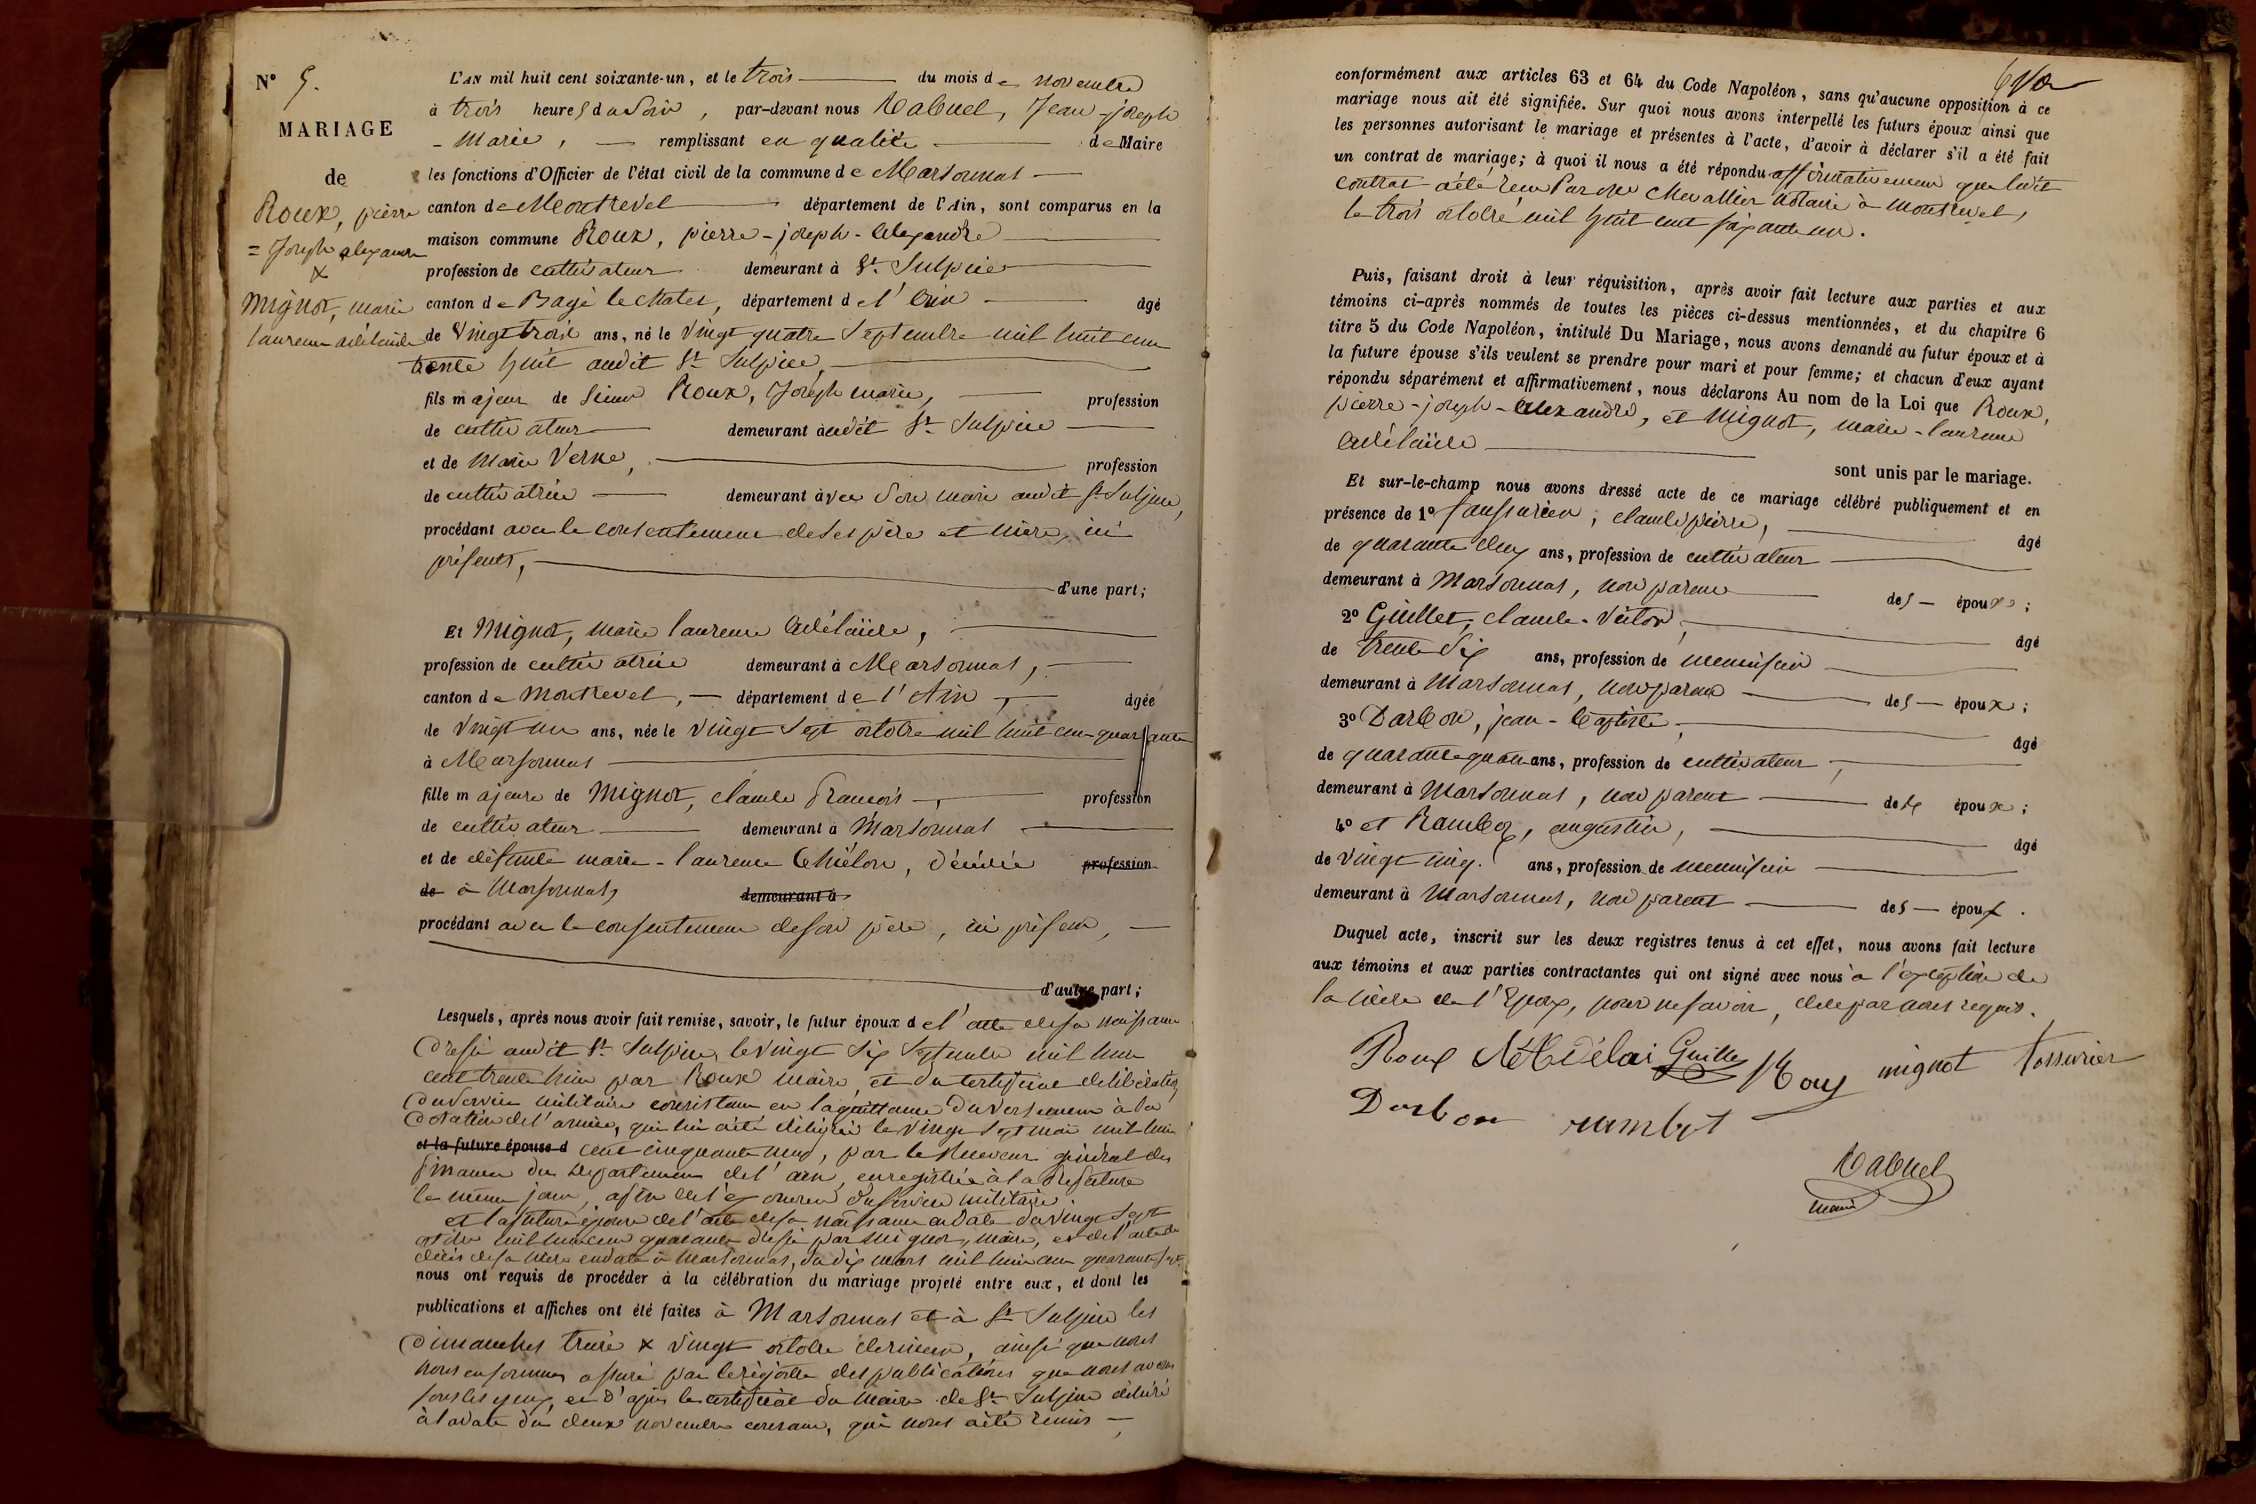 N° 5.
MARIAGE
de
Roux, pierre
= Joseph alexandre
&
Mignot, marie
laurence adélaïde
L'AN mil huit cent soixante-un, et le trois du mois de novembre
à trois heures du Soir, par-devant nous Cabuel, Jean-joseph
- Marie, remplissant en qualité de Maire
les fonctions d'Officier de l'état civil de la commune de Marsonnas
canton de Montrevel département de l'Ain, sont comparus en la
maison commune Roux, pierre-joseph-Alexandre
profession de cultivateur demeurant à St. Sulpice
canton de Bagé le chatel, département de l'Ain âgé
de Vingt trois ans, né le Vingt quatre Septembre mil huit cent
trente huit audit St Sulpice,
fils majeur de Sieur Roux, Joseph marie, profession
de cultivateur demeurant audit St Sulpice
et de Marie Verne, profession
de cultivatrice demeurant avec Son mari audit St Sulpice,
procédant avec le consentement de Ses père et mère, ici
présents,
d'une part;
Et Mignot, marie laurence Adélaïde,
profession de cultivatrice demeurant à Marsonnas,
canton de Montrevel, département de l'Ain, âgée
de Vingt un ans, née le Vingt Sept octobre mil huit cent quarante
à Marsonnas
fille majeure de Mignot, claude François, profession
de cultivateur demeurant à Marsonnas
et de défunte marie-laurence Chélon, décédée profession
de à Marsonnas, demeurant à
procédant avec le consentement de son père, ici présent,
d'autre part;
Lesquels, après nous avoir fait remise, savoir, le futur époux de l'acte de sa naissance
Dressé audit St. Sulpice, le vingt Six Septembre mil huit
cent trente huit par Roux maire, et du certificat de libération
du Service militaire consistant en la quittance du versement à la
Dotation de l'armée, qui lui a été délivrée le vingt Sept mai mil huit
et la future épouse d cent cinquante neuf, par le Receveur général des
finances du Département de l'ain, enregistrée à la Préfecture
le même jour, afin de l'exonérer du Service militaire.
et la future épouse de l'acte de sa naissance en date du Vingt Sept
octobre mil huit cent quarante dressé par Mignot, maire, et de l'acte de
décès de sa mère en date à Marsonnas, du dix mars mil huit cent quarante Sept
nous ont requis de procéder à la célébration du mariage projeté entre eux, et dont les
publications et affiches ont été faites à Marsonnas et à St Sulpice les
Dimanches treize & vingt octobre dernier, ainsi que nous
nous en sommes assuré par le régistre des publications que nous avons
sous les yeux, et d'après le certificat du Maire de St. Sulpice délivré
à la date du deux novembre courant, qui nous a été remis
conformément aux articles 63 et 64 du Code Napoléon, sans qu'aucune opposition à ce
mariage nous ait été signifiée. Sur quoi nous avons interpellé les futurs époux ainsi que
les personnes autorisant le mariage et présentes à l'acte, d'avoir à déclarer s'il a été fait
un contrat de mariage; à quoi il nous a été répondu affirmativement que ledit
contrat a été reçu Par Me Chevallier notaire à Montrevel,
le trois octobre mil huit cent soixante un.
Puis, faisant droit à leur réquisition, après avoir fait lecture aux parties et aux
témoins ci-après nommés de toutes les pièces ci-dessus mentionnées, et du chapitre 6
titre 5 du Code Napoléon, intitulé Du Mariage, nous avons demandé au futur époux et à
la future épouse s'ils veulent se prendre pour mari et pour femme; et chacun d'eux ayant
répondu séparément et affirmativement, nous déclarons Au nom de la Loi que Roux,
pierre-joseph-alexandre, et Mignot, marie-laurence
Adélaïde
sont unis par le mariage.
Et sur-le-champ nous avons dressé acte de ce mariage célébré publiquement et en
présence de 1° claude pierre, âgé
de quarante deux ans, profession de cultivateur
demeurant à Marsonnas, non parent des époux;
2° Guillet, claude-Victor, âgé
de trente Six ans, profession de menuisier
demeurant à Marsonnas, non parent des époux;
3° Darbon, jean-baptiste, âgé
de quarante quatre ans, profession de cultivateur,
demeurant à Marsonnas, non parent des époux;
4° et Ramboz, augustin, âgé
de vingt cinq. ans, profession de menuisier
demeurant à Marsonnas, non parent des époux.
Duquel acte, inscrit sur les deux registres tenus à cet effet, nous avons fait lecture
aux témoins et aux parties contractantes qui ont signé avec nous à l'exception de
la mère de l'Epoux, pour ne savoir, de ce par nous requis.
Roux Guillet Roux mignot tossurier
Darbon rambot
Cabuel
maire